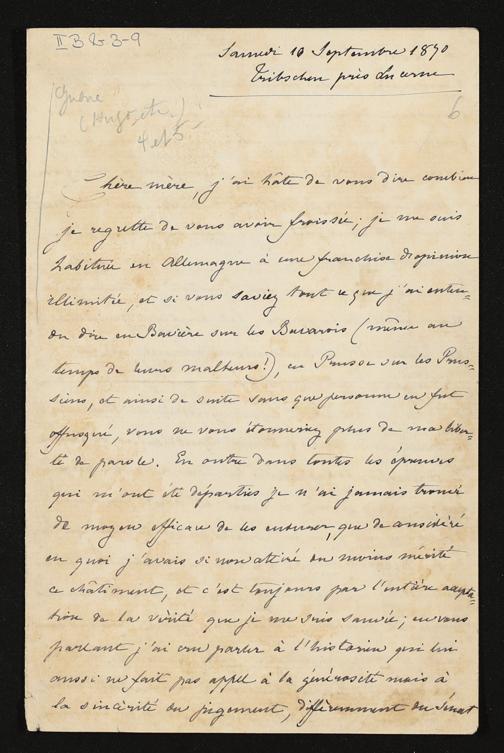 II 3 & 3-9
Samedi 10 Septembre 1870
Tribschen près Lucerne
Guerre
(Hugo, etc.)
4 et 5
6
Chère mère, j'ai hâte de vous dire combien
je regrette de vous avoir froissée; je me suis
habituée en Allemagne à une franchise d'opinion
illimitée, et si vous saviez tout ce que j'ai enten-
du dire en Bavière sur les Bavarois (même au
temps de leurs malheurs!), en Prusse sur les Prus-
siens, et ainsi de suite sans que personne en fut
offusqué, vous ne vous étonneriez plus de ma liber-
té de parole. En outre dans toutes les épreuves
qui m'ont été départies je n'ai jamais trouvé
de moyen efficace de les endurer, que de considéré
en quoi j'avais sinon attiré du moins mérité
ce châtiment, et c'est toujours par l'entière accepta-
tion de la vérité que je me suis sauvée; en vous
parlant j'ai cru parler à l'historien qui lui
aussi ne fait pas appel à la générosité mais à
la sincérité du jugement, différemment du Sénat